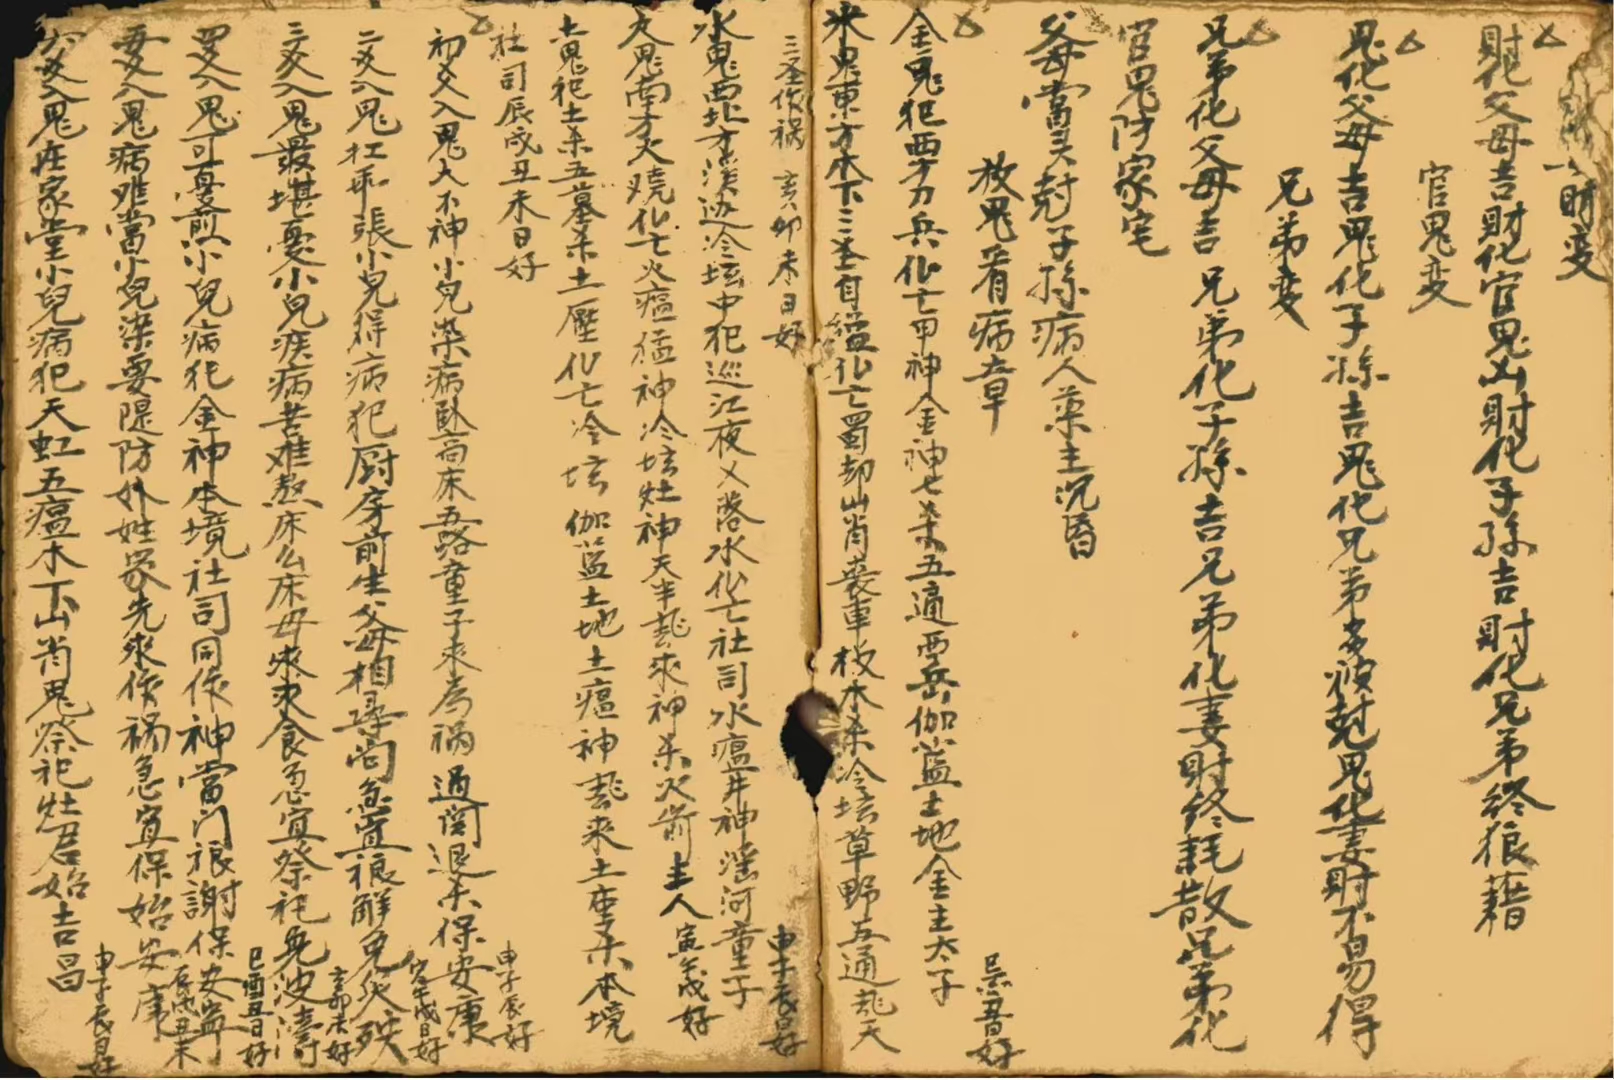 財变
財化父母吉財化官鬼凶財化子孫吉財化兄弟終狼藉
官鬼变
鬼化父母吉鬼化子孫吉鬼化兄弟多被尅鬼化妻財不易得
兄弟变
兄弟化父母吉兄弟化子孫吉兄弟化妻財終耗散兄弟化
官鬼防家宅
父母當头尅子孫病人药主沉昏
放鬼看病章
金鬼犯西方刀兵化亡甲神金神七杀五通西岳伽蓝土地金主太子
忌丑酉好
木鬼東方木下三圣自缢化亡蜀却山肖喪車枚木杀冷坛草野五通乱天
三圣作祸 亥卯未日好
水鬼西北方溪边冷坛中犯巡江夜乂落水化亡社司水瘟井神滛河童子
申子辰日好
火鬼南方火燒化亡火瘟猛神冷坛灶神天半乱來神杀火箭主人
寅戌好
土鬼犯土杀五墓杀土壓化亡冷坛伽蓝土地土瘟神乱来土座杀本境
社司辰戌丑未日好
初爻入鬼大不神小兒染病臥高床五路童子来为祸過関退杀保安康
申子辰好
二爻入鬼扛乖張小兒得病犯厨房前生父母相尋尚急宜禳解免災殃
寅午戌日好
三爻入鬼最堪憂小兒疾病苦难熬床公床母來求食急宜祭祀免波濤
亥卯未好
四爻入鬼可憂煎小兒病犯金神本境社司同作神當门禳謝保安寧
巳酉丑日好
五爻入鬼病难當小兒染要隄防外姓家先來作祸急宜保始安康
辰戌丑未
六爻入鬼在家堂小兒病犯天虹五瘟木下山肖鬼祭祀灶君始吉昌
申子辰日好